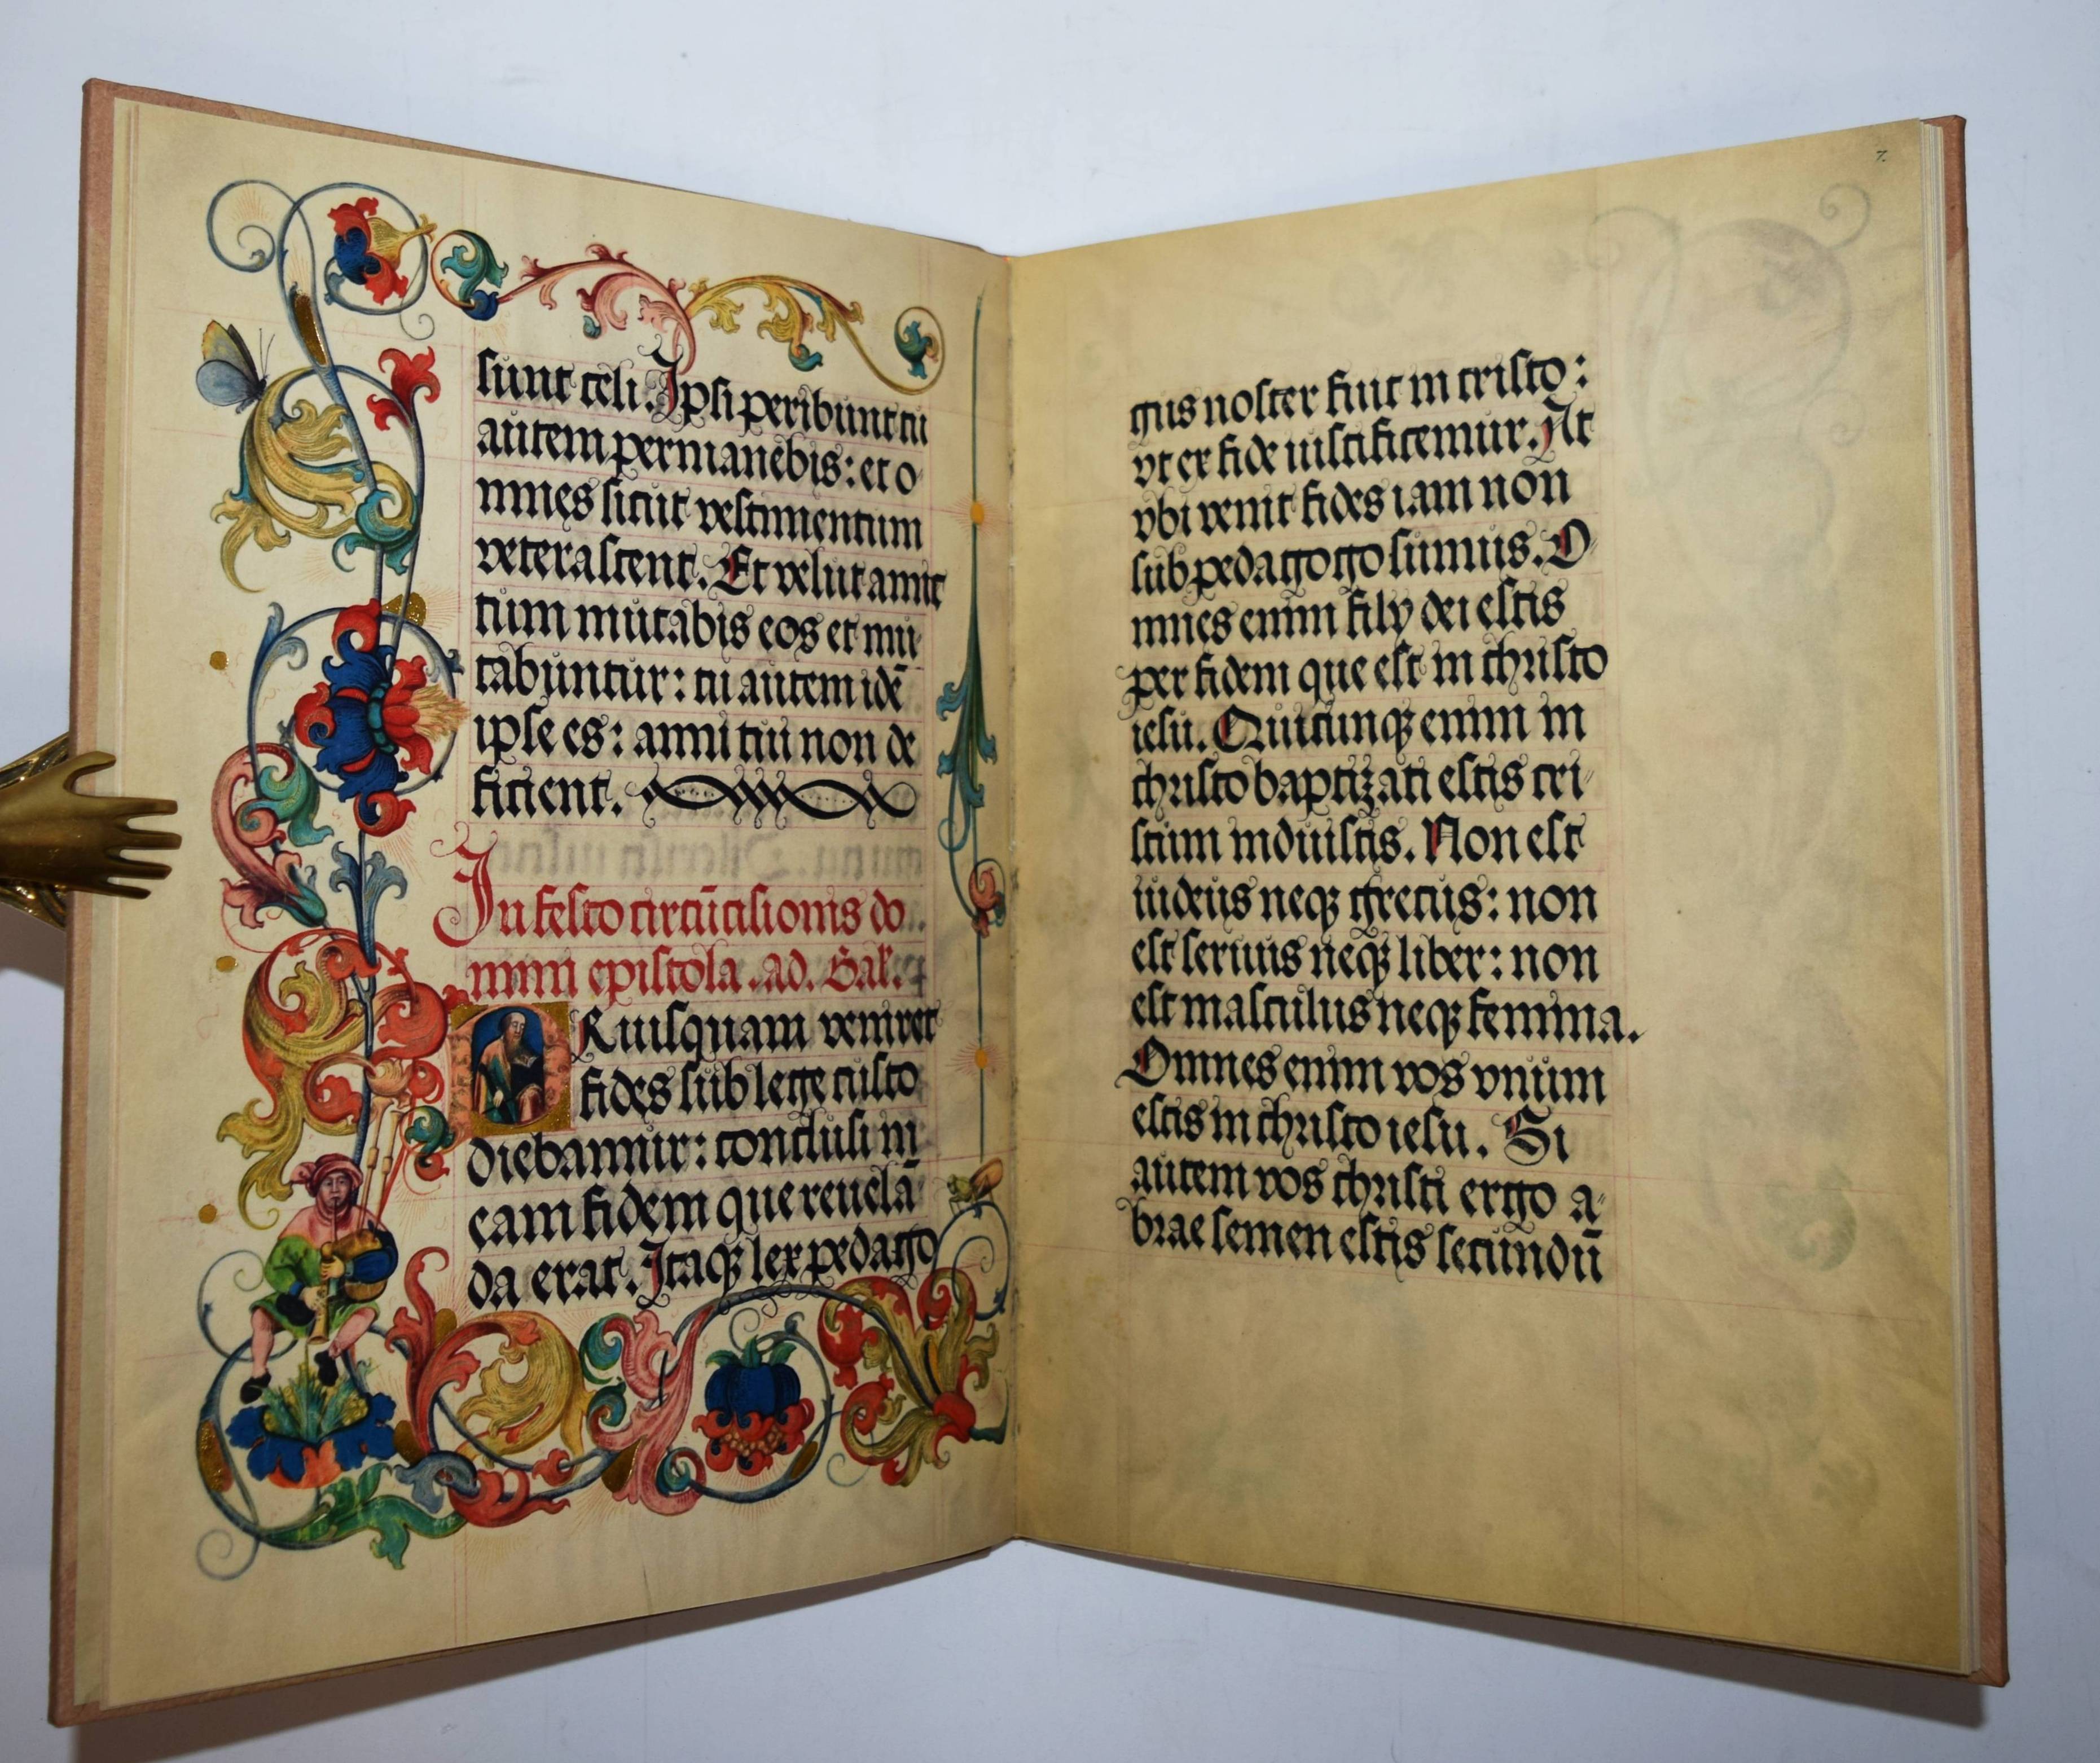 sunt celi. Ipsi peribunt tu
autem permanebis: et o
mnes sicut vestimentum
veterascent. Et velut amic
tum mutabis eos et mu
tabuntur: tu autem idē
ipse es: anni tui non de
ficient.
In festo circūcisionis do
mini epistola. ad. Gal.
Riusquam veniret
fides sub lege custo
diebamur: conclusi in
eam fidem que reuelā
da erat. Itaqꝫ lex pedago
7.
gus noster fuit in cristo:
vt ex fide iustificemur. At
vbi venit fides iam non
sub pedagogo sumus. O
mnes enim filÿ dei estis
per fidem que est in christo
iesu. Quicunqꝫ enim in
christo baptizati estis cri
stum induistis. Non est
iudeus neqꝫ grecus: non
est seruus neqꝫ liber: non
est masculus neqꝫ femina.
Omnes enim vos vnum
estis in christo iesu. Si
autem vos christi ergo a
brae semen estis secundū